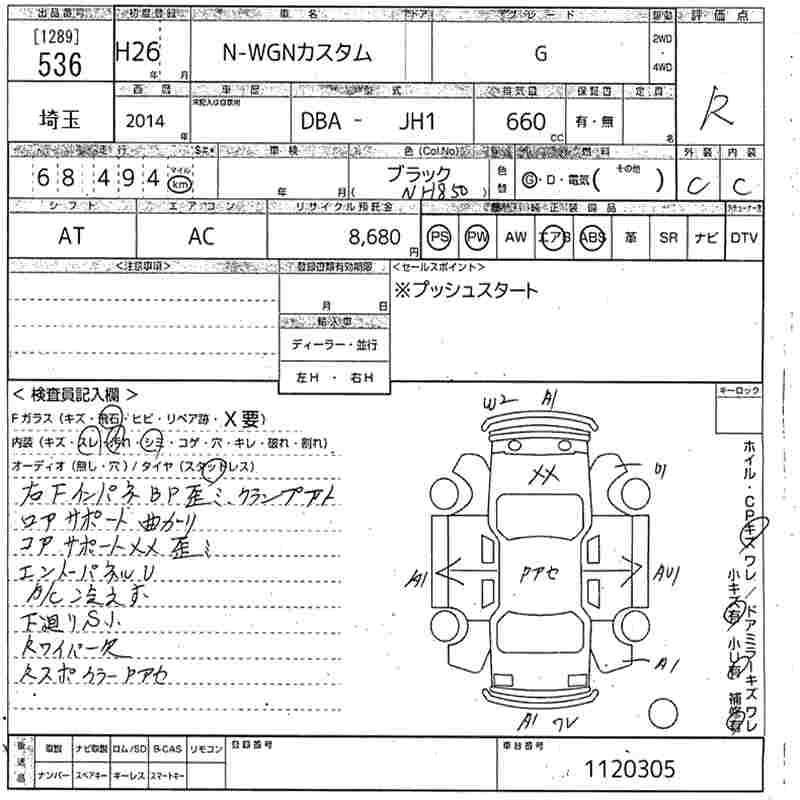 出品番号 初度登録 車名 ドア グレード 駆動 評価点
[1289] 536 H26 年 月 N-WGNカスタム G 2WD ・ 4WD R
西暦 車歴 型式 排気量 保証書 定員
埼玉 2014 年 未記入は自家用 DBA - JH1 660 CC 有・無 名
走行 車検 色 (Col.No) 燃料 外装 内装
68494 マイル km 年 月 ブラック ( NH850 ) 色替 G・D・電気( その他 ) C C
シフト エアコン リサイクル預託金 装正装備品
AT AC 8,680 円 PS PW AW エアB ABS 革 SR ナビ DTV
<注意事項> 登録書類有効期限 <セールスポイント>
月 日 ※プッシュスタート
輸入車
ディーラー・並行
左H ・ 右H
< 検査員記入欄 > キーロック
Fガラス (キズ・飛石・ヒビ・リペア跡・X要)
内装 (キズ・スレ・汚れ・シミ・コゲ・穴・キレ・破れ・割れ)
オーディオ (無し・穴) / タイヤ (スタッドレス)
右FインパネBP歪ミ、クランプアト
ロアサポート曲がり
コアサポートXX歪ミ
エントーパネルU
A/C冷えず
下廻りS小
Rワイパー欠
Rスポカラードアセ
W2 A1
XX
A1 ドアセ AU1
A1
A1 ワレ
ホイル・CPキズ ワレ / ドアミラーキズ ワレ
小キズ有 小U有 補修有
後送品 取説 ナビ取説 ロム/SD B-CAS リモコン 登録番号 車台番号
ナンバー スペアキー キーレス スマートキー 1120305